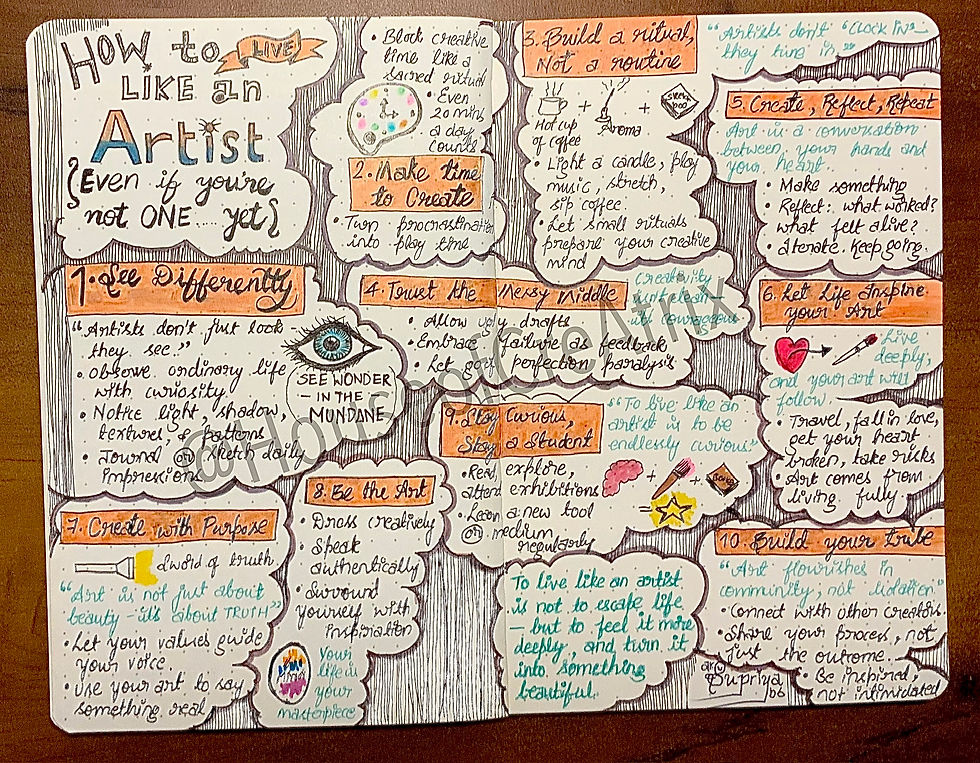 HOW to LIVE
LIKE an
Artist
{Even if you're
not ONE... yet}
1. See Differently
"Artists don't just look
they see."
• Observe ordinary life
with curiosity
• Notice light, shadow,
textures, & patterns
• Journal or sketch daily
impressions
SEE WONDER
— IN THE
MUNDANE
• Block creative
time like a
sacred ritual
• Even
20 mins
a day
counts
2. Make time
to Create
• Turn procrastination
into play time
3. Build a ritual,
Not a routine
"Artists don't "CLOCK IN"—
they tune in."
Hot cup
of coffee
+
Aroma
+
• Light a candle, play
music, stretch,
sip coffee.
• Let small rituals
prepare your creative
mind
4. Trust the Messy Middle
• Allow ugly drafts
• Embrace failure as feedback
• Let go of perfection paralysis
Creativity
isn't clean—
it's courageous
5. Create, Reflect, Repeat
Art is a conversation
between your hands and
your heart.
• Make something
• Reflect: what worked?
what felt alive?
• Iterate. Keep going.
6. Let Life Inspire
your Art
Live
deeply,
and your art will
follow
• Travel, fall in love,
get your heart
broken, take risks
• Art comes from
living fully.
7. Create with Purpose
"Art is not just about
beauty – it's about TRUTH"
• Let your values guide
your voice.
• Use your art to say
something real
8. Be the Art
• Dress creatively
• Speak
authentically
• Surround
yourself with
inspiration
Your
life is
your
masterpiece
9. Stay Curious,
Stay a Student
"To live like an
artist is to be
endlessly curious"
• Read, explore,
attend exhibitions
• Learn a new tool
or medium
regularly
+
+
=
To live like an artist
is not to escape life
— but to feel it more
deeply, and turn it
into something
beautiful.
10. Build your tribe
"Art flourishes in
community, not isolation"
• Connect with other creators.
• Share your process, not
just the outcome.
• Be inspired,
not intimidated
Supriya